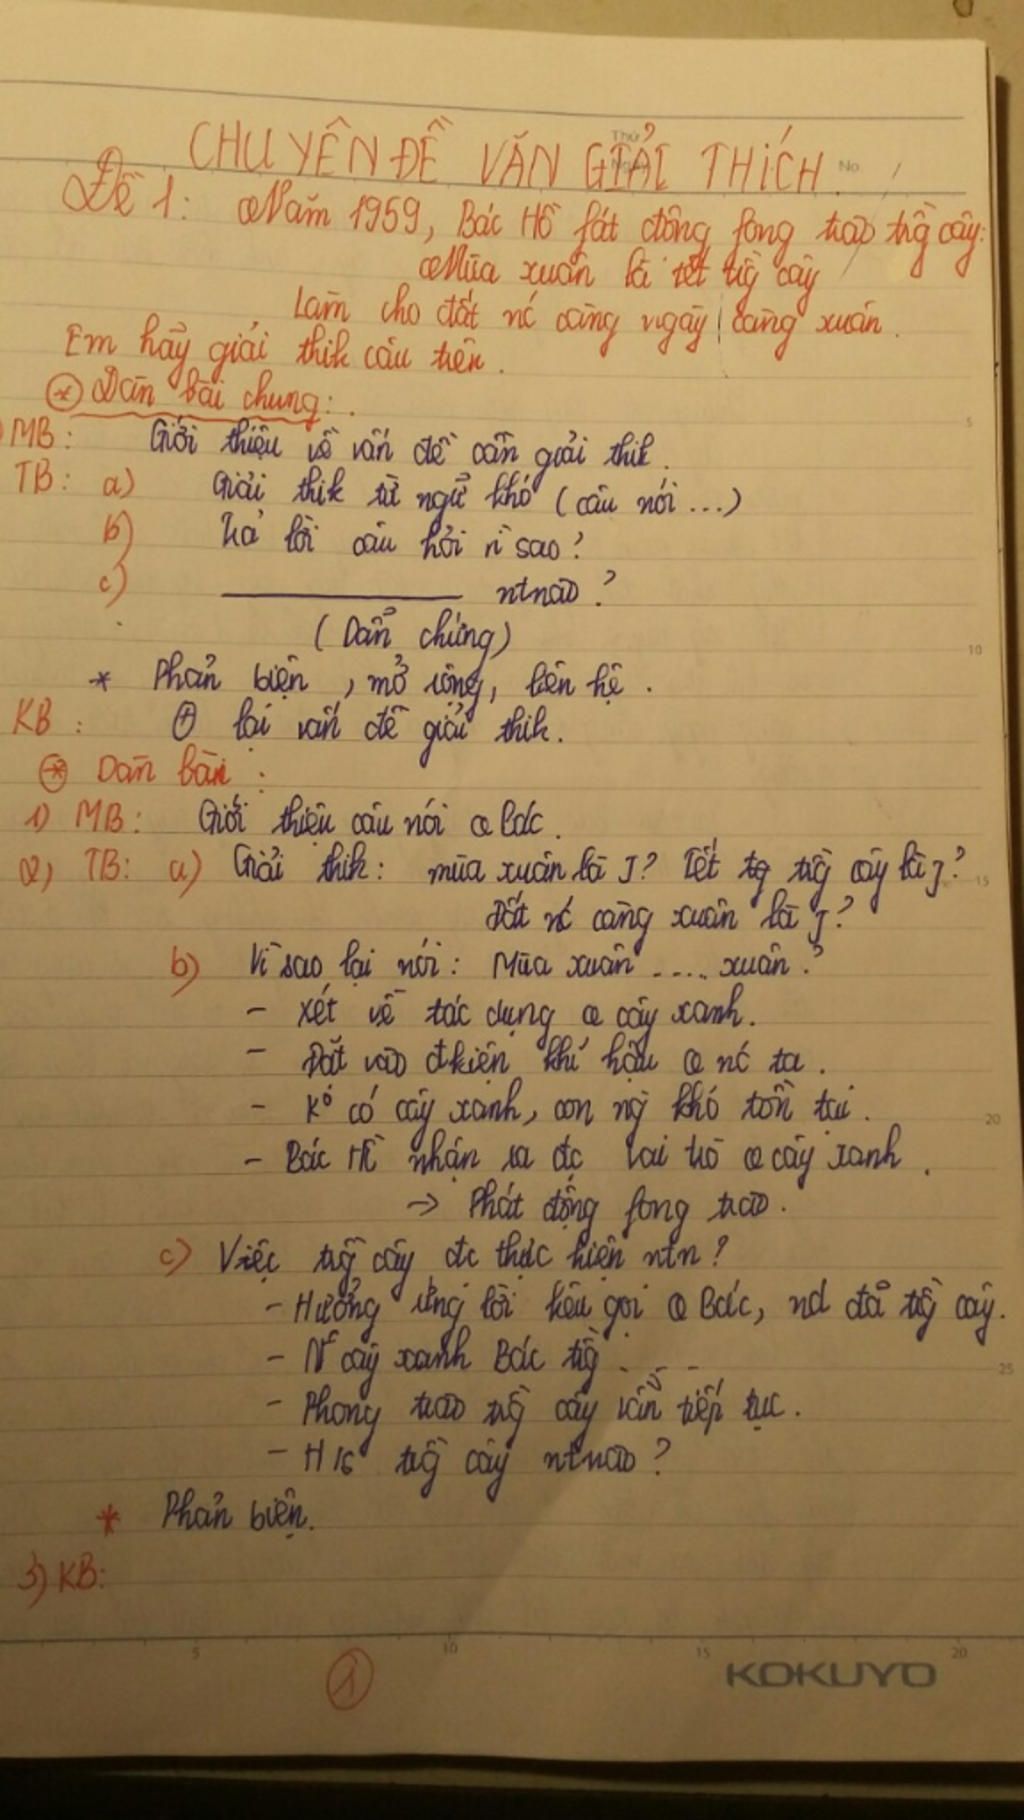 CHUYÊN ĐỀ VĂN GIẢI THÍCH
Thứ
Ngày
No.
Đề 1: Năm 1959, Bác Hồ fát động fong trào trồg cây:
Mùa xuân là tết trồg cây
Làm cho đất nc càng ngày càng xuân.
Em hãy giải thik câu trên.
* Dàn bài chung:
MB: Giới thiệu về vấn đề cần giải thik.
TB: a) Giải thik từ ngữ khó (câu nói...)
b) Trả lời câu hỏi vì sao?
c) ———— ntnào?
(Dẫn chứng)
* Phản biện, mở rộng, liên hệ.
KB: lại vấn đề giải thik.
* Dàn bài:
1) MB: Giới thiệu câu nói Bác.
2) TB: a) Giải thik: mùa xuân là J? Tết trồg cây là J?
Đất nc càng xuân là J?
b) Vì sao lại nói: Mùa xuân .... xuân?
- Xét về tác dụng cây xanh.
- Đặt vào đkiện khí hậu nc ta.
- Ko có cây xanh, con ng khó tồn tại.
- Bác Hồ nhận ra đc vai trò cây xanh.
→ Phát động fong trào.
c) Việc trồg cây đc thực hiện ntn?
- Hưởng ứng lời kêu gọi Bác, nd đã trồg cây.
- cây xanh Bác trồg . - -
- Phong trào trồg cây vẫn tiếp tục.
- trồg cây ntnào?
* Phản biện.
3) KB:
5
10
15
20
25
5
10
15
20
1
KOKUYO